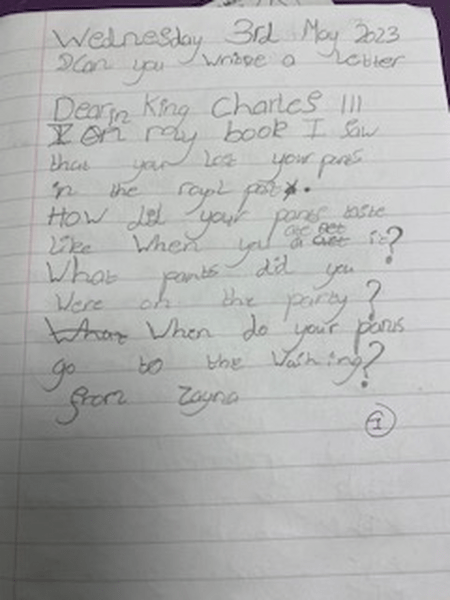 Wednesday 3rd May 2023
Can you write a letter
Dear King Charles III
I on my book I saw
that you lost your pans
in the royal
How did your pans taste
like when you it?
What pants did you
Were on the party?
What When do your pans
go to the Washing?
from Zayna
1